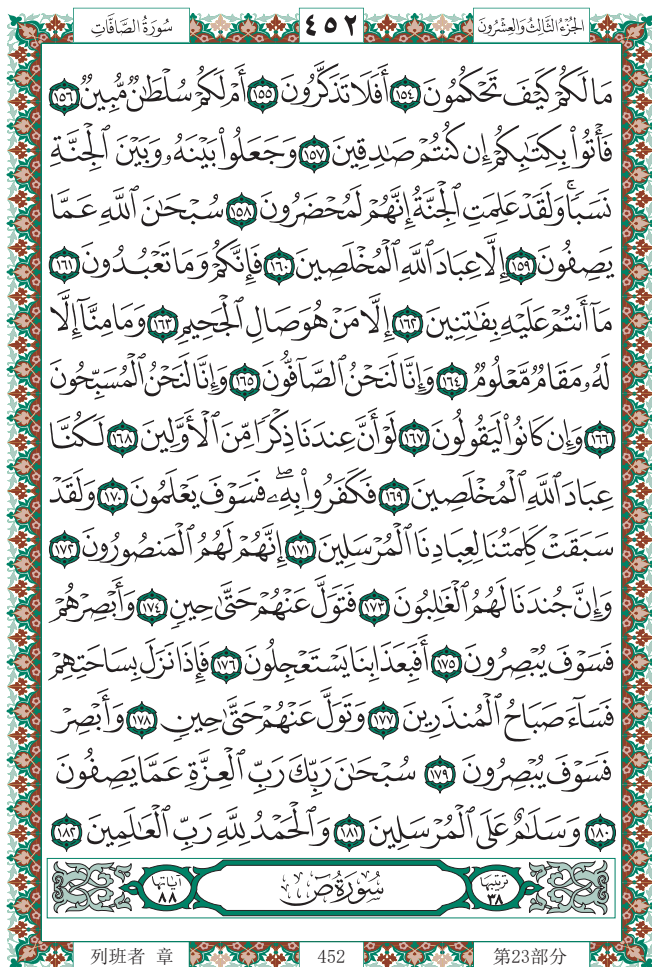 سُورَةُ الصَّافَاتِ ٤٥٢ الجُزْءُ الثَّالِثُ وَالعِشْرُونَ
مَا لَكُمْ كَيْفَ تَحْكُمُونَ ١٥٤ أَفَلَا تَذَكَّرُونَ ١٥٥ أَمْ لَكُمْ سُلْطَٰنٌ مُّبِينٌ ١٥٦
فَأْتُوا۟ بِكِتَٰبِكُمْ إِن كُنتُمْ صَٰدِقِينَ ١٥٧ وَجَعَلُوا۟ بَيْنَهُۥ وَبَيْنَ ٱلْجِنَّةِ
نَسَبًا ۚ وَلَقَدْ عَلِمَتِ ٱلْجِنَّةُ إِنَّهُمْ لَمُحْضَرُونَ ١٥٨ سُبْحَٰنَ ٱللَّهِ عَمَّا
يَصِفُونَ ١٥٩ إِلَّا عِبَادَ ٱللَّهِ ٱلْمُخْلَصِينَ ١٦٠ فَإِنَّكُمْ وَمَا تَعْبُدُونَ ١٦١
مَآ أَنتُمْ عَلَيْهِ بِفَٰتِنِينَ ١٦٢ إِلَّا مَنْ هُوَ صَالِ ٱلْجَحِيمِ ١٦٣ وَمَا مِنَّآ إِلَّا
لَهُۥ مَقَامٌ مَّعْلُومٌ ١٦٤ وَإِنَّا لَنَحْنُ ٱلصَّآفُّونَ ١٦٥ وَإِنَّا لَنَحْنُ ٱلْمُسَبِّحُونَ
١٦٦ وَإِن كَانُوا۟ لَيَقُولُونَ ١٦٧ لَوْ أَنَّ عِندَنَا ذِكْرًا مِّنَ ٱلْأَوَّلِينَ ١٦٨ لَكُنَّا
عِبَادَ ٱللَّهِ ٱلْمُخْلَصِينَ ١٦٩ فَكَفَرُوا۟ بِهِۦ ۖ فَسَوْفَ يَعْلَمُونَ ١٧٠ وَلَقَدْ
سَبَقَتْ كَلِمَتُنَا لِعِبَادِنَا ٱلْمُرْسَلِينَ ١٧١ إِنَّهُمْ لَهُمُ ٱلْمَنصُورُونَ ١٧٢
وَإِنَّ جُندَنَا لَهُمُ ٱلْغَٰلِبُونَ ١٧٣ فَتَوَلَّ عَنْهُمْ حَتَّىٰ حِينٍ ١٧٤ وَأَبْصِرْهُمْ
فَسَوْفَ يُبْصِرُونَ ١٧٥ أَفَبِعَذَابِنَا يَسْتَعْجِلُونَ ١٧٦ فَإِذَا نَزَلَ بِسَاحَتِهِمْ
فَسَآءَ صَبَاحُ ٱلْمُنذَرِينَ ١٧٧ وَتَوَلَّ عَنْهُمْ حَتَّىٰ حِينٍ ١٧٨ وَأَبْصِرْ
فَسَوْفَ يُبْصِرُونَ ١٧٩ سُبْحَٰنَ رَبِّكَ رَبِّ ٱلْعِزَّةِ عَمَّا يَصِفُونَ
١٨٠ وَسَلَٰمٌ عَلَى ٱلْمُرْسَلِينَ ١٨١ وَٱلْحَمْدُ لِلَّهِ رَبِّ ٱلْعَٰلَمِينَ ١٨٢
ترتيبها ٣٨ سُورَةُ صٓ آياتها ٨٨
列班者 章 452 第23部分